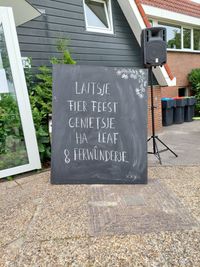 LAITSJE
FIER FEEST
GENIETSJE
HA LEAF
& FERWÛNDERJE
xxx